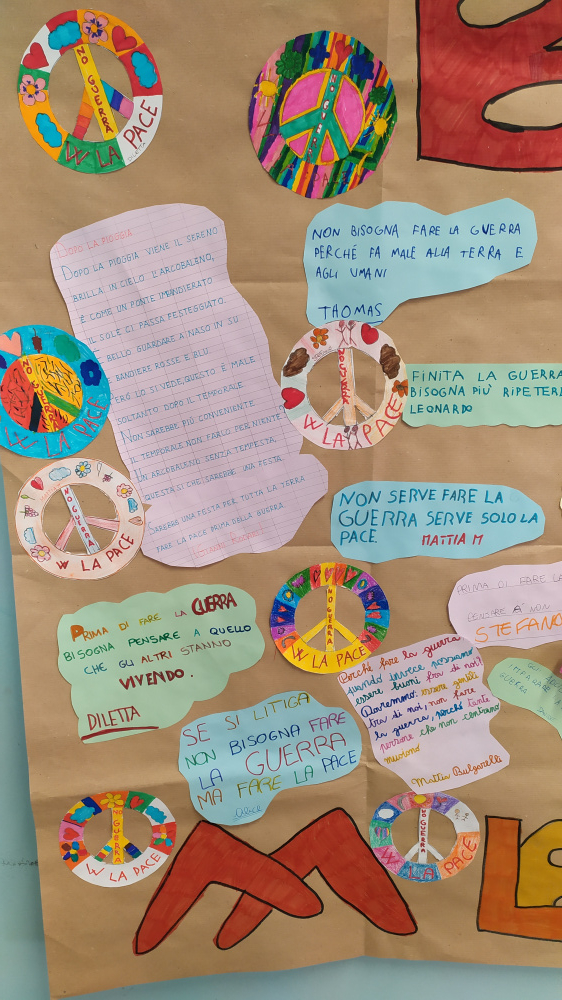 NO GUERRA
W LA PACE
DOPO LA PIOGGIA
DOPO LA PIOGGIA VIENE IL SERENO
BRILLA IN CIELO L'ARCOBALENO,
È COME UN PONTE IMBANDIERATO
IL SOLE CI PASSA FESTEGGIATO.
BELLO GUARDARE A NASO IN SU
BANDIERE ROSSE E BLU.
PERÒ LO SI VEDE, QUESTO È MALE
SOLTANTO DOPO IL TEMPORALE
NON SAREBBE PIÙ CONVENIENTE
IL TEMPORALE NON FARLO PER NIENTE
UN ARCOBALENO SENZA TEMPESTA,
QUESTA SI CHE SAREBBE UNA FESTA.
SAREBBE UNA FESTA PER TUTTA LA TERRA
FARE LA PACE PRIMA DELLA GUERRA
NON BISOGNA FARE LA GUERRA
PERCHÉ FA MALE ALLA TERRA E
AGLI UMANI
THOMAS
NO GUERRA
W LA PACE
NO GUERRA
W LA PACE
FINITA LA GUERRA
BISOGNA PIÙ RIPETERE
LEONARDO
NO GUERRA
W LA PACE
NON SERVE FARE LA
GUERRA SERVE SOLO LA
PACE MATTIA M
NO GUERRA
W LA PACE
PRIMA DI FARE LA
PENSARE A NON
STEFANO
PRIMA DI FARE LA GUERRA
BISOGNA PENSARE A QUELLO
CHE GLI ALTRI STANNO
VIVENDO.
DILETTA
Perché fare la guerra
quando invece possiamo
essere buoni fra di noi?
Dovremmo: essere gentili
tra di noi, non fare
la guerra, perché tante
persone che non centrano
muoiono
Mattia Bulgarelli
IMPARARE
GUERRA
SE SI LITIGA
NON BISOGNA FARE
LA GUERRA
MA FARE LA PACE
Alice
NO GUERRA
W LA PACE
NO GUERRA
W LA PACE